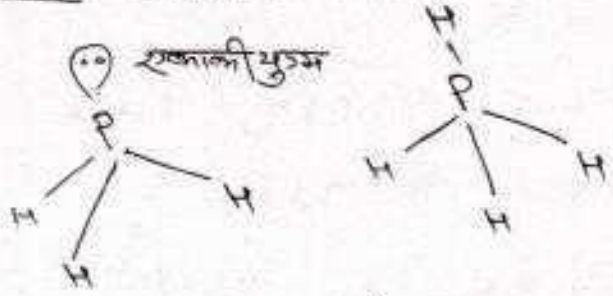 एकाकी युग्म
H
P
P
H
H
H
H
H
H